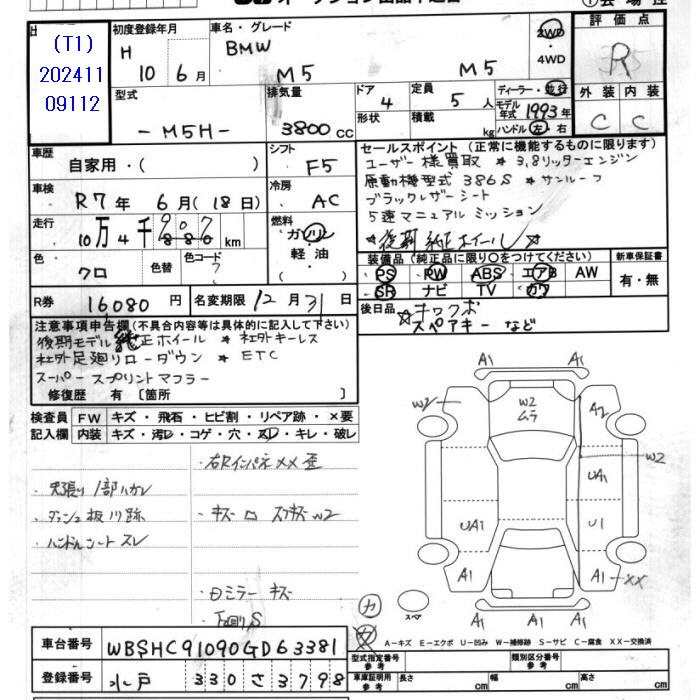 (T1)
202411
09112
初度登録年月
H 10 年 6 月
車名・グレード
BMW
M5 M5
2WD
・4WD
評価点
R
外装 内装
C C
型式
- M5H -
排気量
3800 CC
ドア
4
形状
定員
5 人
積載
kg
ディーラー・並行
モデル年式 1993年
ハンドル 左 右
車歴
自家用・( )
シフト
F5
車検
R7年 6月(18日)
冷房
AC
走行
10万4千907 km
880
燃料
ガソリン
軽油
( )
色
クロ
色替
色コード
セールスポイント (正常に機能するものに限ります)
ユーザー様買取 * 3.8リッターエンジン
原動機型式 386S * サンルーフ
ブラックレザーシート
5速マニュアルミッション
☆後期純正ホイール☆
装備品 (純正品に限り○をつけてください)
PS PW ABS エアB AW
SR ナビ TV カワ
新車保証書
有・無
R券 16080 円
名変期限 12月31日
後日品
☆キャクボ
スペアキーなど
注意事項申告欄(不具合内容等は具体的に記入して下さい)
後期モデル純正ホイール * 社外キーレス
社外足廻りローダウン * ETC
スーパースプリントマフラー
修復歴 有 〔箇所 〕
検査員
記入欄
FW キズ・飛石・ヒビ割・リペア跡・×要
内装 キズ・汚レ・コゲ・穴・スレ・キレ・破レ
・天張り1部ハガレ
・ダッシュ板ハリ跡
・ハンドルシートスレ
・右Rインパネ××歪
・キズ ロ スアキズW2
・Dミラー キズ
下廻りS
A1 A1
W2 W2
ムラ
A2
W2
UA1
UA1 U1
A1 A1 ××
A1 A1 A1
カ
スペア
A-キズ E-エクボ U-凹み W-補修跡 S-サビ C-腐食 XX-交換済
車台番号 WBSHC91090GD63381
登録番号 水戸 330 さ 3798
型式指定番号
参考
類別区分番号
参考
車庫証明用
参考
長さ cm
幅 cm
高さ cm